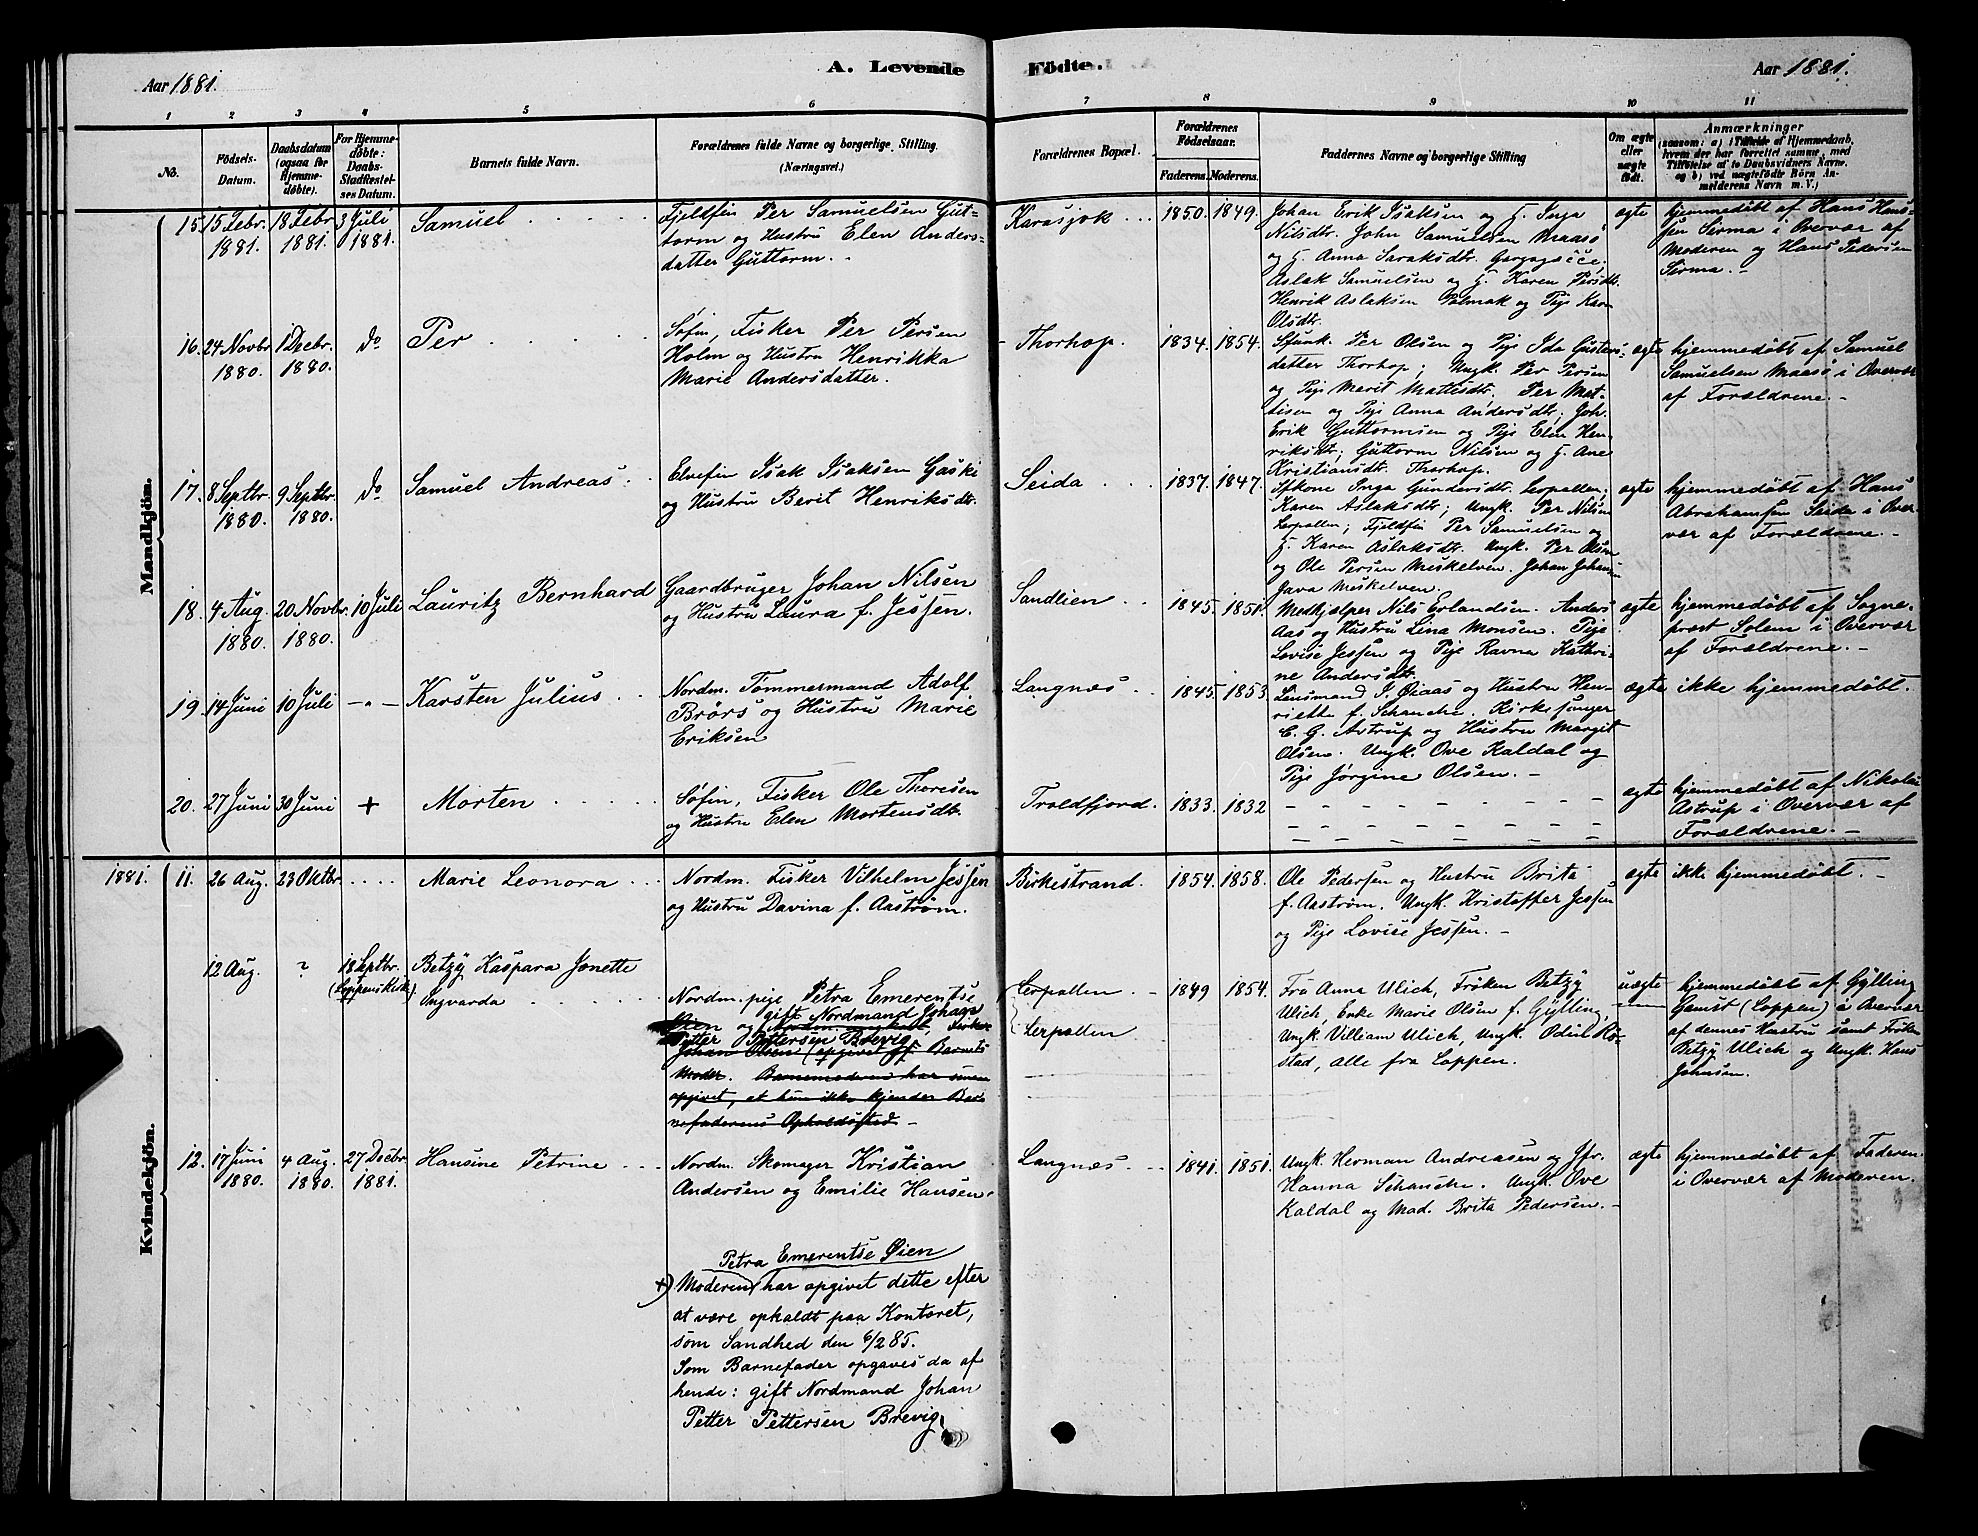 Aar 1881.
A. Levende
Födte.
Aar 1881.
1 2 3 4 5 6 7 8 9 10 11
No.
Födsels-
Datum.
Daabsdatum
(ogsaa for
Hjemme-
döbte).
For Hjemme-
döbte:
Daabs
Stadfæstel-
ses Datum.
Barnets fulde Navn.
Forældrenes fulde Navne og borgerlige Stilling.
(Næringsvei.)
Forældrenes Bopæl.
Forældrenes
Födselsaar.
Faderens. Moderens.
Faddernes Navne og borgerlige Stilling
Om ægte
eller
uægte
födt.
Anmærkninger
(saasom: a) i Tilfælde af Hjemmedaab,
hvem der har forrettet samme, med
Tilföielse af to Daabsvidners Navne.
og b) ved uægtefödte Börn An-
melderens Navn m. V.)
Mandkjön.
15. 15 Febr.
1881.
18 Febr
1881.
3 Juli
1881.
Samuel
Fjeldfin Per Samuelsen Gut-
torm og Hustru Elen Anders-
datter Guttorm.
Karasjok
1850. 1849.
Johan Erik Isaksen og G. Inga
Nilsdtr. John Samuelsen Maasö
og G. Anna Saraksdtr.
Aslak Samuelsen og G. Karen Persdtr.
Henrik Aslaksen Polmak og Pige Karn
Olsdtr.
ægte
hjemmedöbt af Hans Hans-
sen Sirma i Overvær af
Moderen og Hans Pedersen
Sirma.
16. 24 Novbr
1880.
1 Decbr.
1880.
do
Per
Søfin, Fisker Per Persen
Holm og Hustru Henrikka
Marie Andersdatter.
Thorhop.
1834. 1854.
Per Olsen og Pige Ida Gusters-
datter Thorhop; Ungk. Per Persen
og Pige Marit Mattisdtr. Per Mat-
tisen og Pige Anna Andersdtr; Joh.
Erik Guttormsen og Pige Elen Hen-
riksdtr; Guttorm Nilsen og G. Ane
Kristiansdtr. Thorhop.
ægte
hjemmedöbt af Samuel
Samuelsen Maasö i Overvær
af Forældrene.
17. 8 Septbr.
1880.
9 Septbr.
1880.
do
Samuel Andreas
Elvefin Isak Isaksen Gaski
og Hustru Berit Henriksdtr.
Seida
1837. 1847.
Inga Gundersdtr. Lerpollen;
Karen Aslaksdtr; Ungk. Per Nilsen
Lerpollen; Fjeldfin Per Samuelsen og
G. Karen Aslaksdtr. Ungk. Per Olsen
og Ole Persen Muskelven. Johan Johansen
Gava Muskelven.
ægte
hjemmedöbt af Hans
Abrahamsen Seida i Over-
vær af Forældrene.
18. 4 Aug.
1880.
20 Novbr.
1880.
10 Juli
Lauritz Bernhard
Gaardbruger Johan Nilsen
og Hustru Laura f. Jessen.
Sandlien
1845. 1851.
Medhjelper Nils Erlandsen. Anders
Aas og Hustru Lina Monsen. Pige
Lovise Jessen og Pige Ravna Kathri-
ne Andersdtr.
ægte
hjemmedöbt af Sogne-
præst Solem i Overvær
af Forældrene.
19. 14 Juni
10 Juli
Karsten Julius
Nordm. Tømmermand Adolf
Brørs og Hustru Marie
Eriksen
Langnæs
1845. 1853
Lensmand P. Øiaas og Hustru Hen-
riette f. Schanche. Kirkesanger
C. G. Astrup og Hustru Margit
Olsen. Ungk. Ove Kaldal og
Pige Jørgine Olsen.
ægte
ikke hjemmedöbt.
20. 27 Juni
30 Juni
+
Morten
Søfin, Fisker Ole Thoresen
og Hustru Elen Mortensdtr.
Troldfjord.
1833. 1832
ægte
hjemmedöbt af Nikolai
Astrup i Overvær af
Forældrene.
Kvindekjön.
1881. 11. 26 Aug.
23 Oktbr.
Marie Leonora
Nordm. Fisker Vilhelm Jessen
og Hustru Davina f. Aaström.
Birkestrand.
1854. 1858.
Ole Pedersen og Hustru Brita
f. Aaström. Ungk. Kristoffer Jessen
og Pige Lovise Jessen.
ægte
ikke hjemmedöbt.
12 Aug.
?
18 Septbr.
(Loppens Kirke)
Betzÿ Kaspara Jonette
Ingvarda
Nordm. pige Petra Emerentse
Øien og gift Nordmand Johan
Petter Pettersen Brevig
Johan Olsen (opgivet af Barnets
Moder. Barnemoderen har senere
opgivet, at hun ikke kjender Bar-
nefaderens Opholdssted
Lerpollen
Lerpollen
1849 1854.
Fru Anna Ulich, Frøken Betzÿ
Ulich, Enke Marie Olsen f. Gÿlling,
Ungk. Villiam Ulich, Ungk. Odin Rö-
stad, alle fra Loppen.
uægte
hjemmedöbt af Gÿlling
Gamst (Loppen) i Overvær
af dennes Hustru samt Frøken
Betzÿ Ulich og Ungk. Hans
Johnsen.
12. 17 Juni
1880.
4 Aug.
1880.
27 Decbr
1881.
Hansine Petrine
Nordm. Skomager Kristian
Andersen og Emilie Hansen.
Langnæs.
1841. 1851.
Ungk. Herman Andreasen og Jfr.
Hanna Schanche. Ungk. Ove
Kaldal og Mad. Brita Pedersen.
ægte
hjemmedöbt af Faderen
i Overvær af Moderen.
Petra Emerentse Øien
+) Moderen har opgivet dette efter
at være opkaldt paa Kontoret,
som Sandhed den 6/2 85.
Som Barnefader opgaves da af
hende: gift Nordmand Johan
Petter Pettersen Brevig.